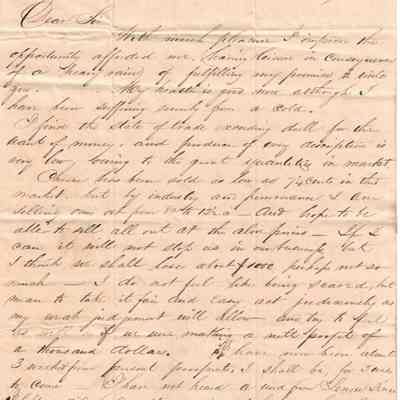 Dear Sir
With much pleasure I improve the
opportunity afforded me, having leisure in consequence
of a heavy rain, of fulfilling my promise, to write
you. My health is good now although I
have been suffering severely from a cold.
I find the state of trade exceeding dull for the
want of money, and produce of every description is
very low, owing to the great quantities in market
Cheese has been sold as low as 7½ cents in this
market, but by industry and perseverance I am
selling ours out from 10 to 12½ c - And hope to be
able to sell all out at the above prices - If I
can it will not stop us in our business, but
I think we shall lose about $1000 perhaps not so
much - I do not feel like being scared, but
mean to take it fair and easy act prudently as
my weak judgment will allow and try to feel
as well as if we were making a nett profit of
a thousand dollars. I have now been about
3 weeks from
present prospects I shall be, for 3 more
to come - I have not heard a word from